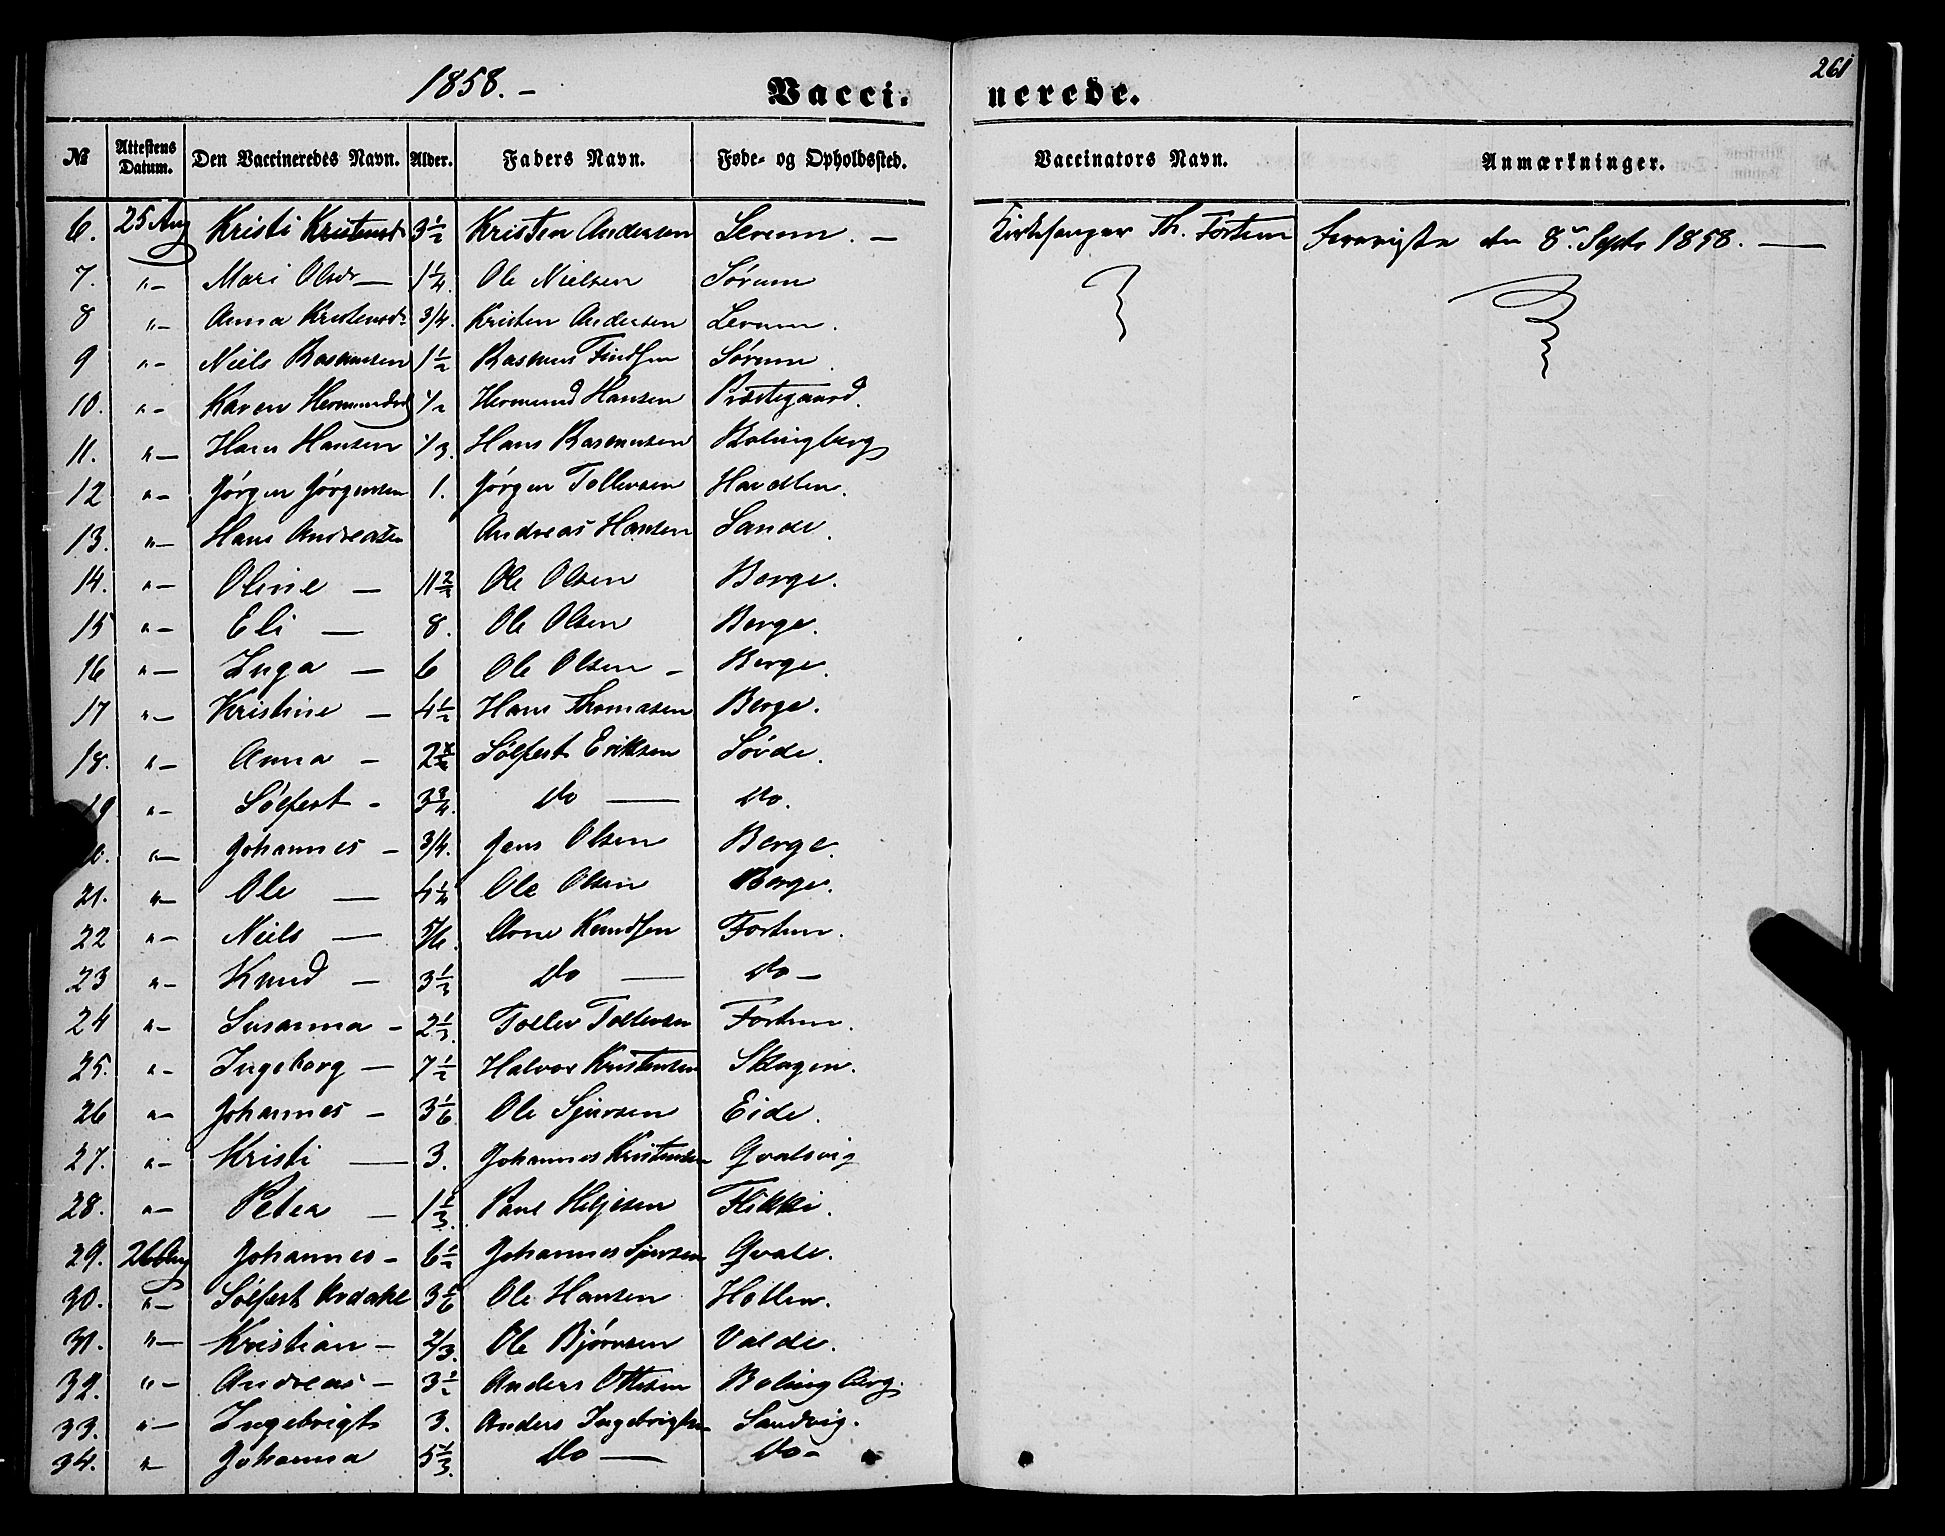 261
1858. –
Vacci- nerede.
№ Attestens Datum. Den Vaccineredes Navn. Alder. Faders Navn. Føde- og Opholdssted. Vaccinators Navn. Anmærkninger.
6. 25 Aug Kristi Kristensdr 3 1/2 Kristen Andersen Kirkesanger Th. Fortun den 8de Septr 1858. —
7. "– Mari Olsdr — 1 1/4. Ole Nielsen Sørum
8 "– Anna Kristensdr 3/4. Kristen Andersen
9 "– Niels Rasmussen 1 1/2 Rasmus Findsen Sørum.
10. "– Karen Hermundsd 1/2 Hermund Hansen Præstegaard.
11. "– Hans Hansen 1/3. Hans Rasmussen Bolingberg
12 "– Jørgen Jørgensen 1. Jørgen Tollevsen
13. "– Hans Andreasen Andreas Hansen Sande.
14. "– Oline — 11 2/3 Ole Olsen Berge.
15 "– Eli — 8. Ole Olsen Berge.
16 "– Inga — 6 Ole Olsen – Berge.
17 "– Kristine — 4 1/2 Hans Thomasen Berge.
18. "– Anna – Sølfest Eriksen Søvde.
19 "– Sølfest – 3 3/4. Do — Do.
"– Johannes – 3/4. Jens Olsen Berge.
21. "– Ole — 4 1/4 Ole Olsen Berge.
22 "– Niels — 5/6. Arne Knudsen Fortun.
23 "– Knud – 3 1/3 Do — Do –
24 "– Susanna – 2 1/3. Tollev Tollevsen Fortun.
25. "– Ingeborg — 7 1/2 Halvor Kristensen Skagen.
26 "– Johannes – 3 1/6 Ole Sjursen Eide.
27. "– Kristi — 3. Johannes Kristensen Qvalsvig
28. "– Peter — 1 1/3. Paul Heljesen Flikki.
29. 26 Aug Johannes – 6 1/2 Johannes Sjursen Qvale.
30. "– Sølfest Ardahl 3 1/6 Ole Hansen
31. "– Kristian – 2/3. Ole Bjørnsen Valde.
32. "– Andreas – 3 1/2 Anders Ottesen Bolingberg.
33. "– Ingebrigt 3. Anders Ingebrigtsen Sandvig.
34. "– Johanna 5 1/3. Do — Do –